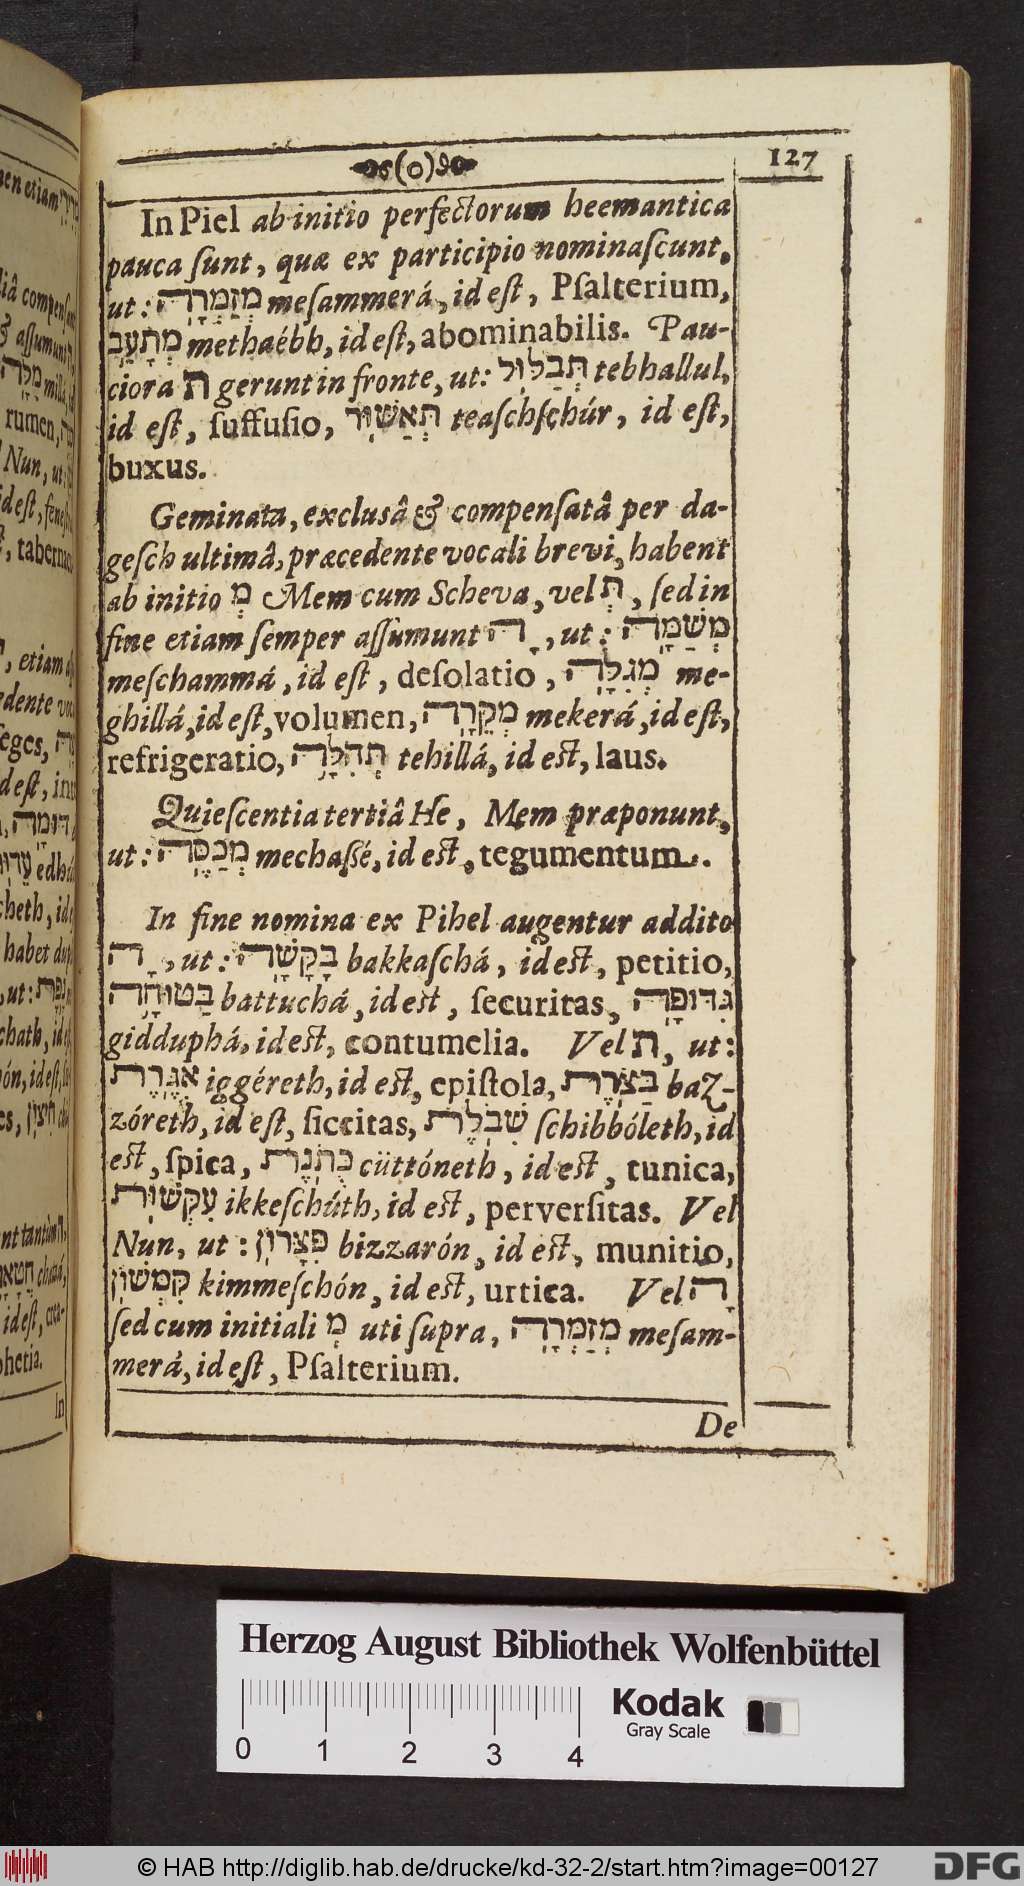 (o)
127
In Piel ab initio perfectorum heemantica
pauca ſunt, quæ ex participio nominaſcunt,
ut: מְזַמְּרָה meſammerá, id eſt, Pſalterium,
מְתָעֵב methaébb, id eſt, abominabilis. Pau-
ciora ת gerunt in fronte, ut: תְּבַלּוּל tebhallul,
id eſt, ſuffuſio, תְּאַשּׁוּר teaſchſchúr, id eſt,
buxus.
Geminata, exclusâ & compenſatâ per da-
geſch ultimâ, præcedente vocali brevi, habent
ab initio מְ Mem cum Scheva, vel תְ, ſed in
fine etiam ſemper aſſumunt ָה, ut: מְשַׁמָּה
meſchammá, id eſt, deſolatio, מְגִלָּה me-
ghillá, id eſt, volumen, מְקֵרָה mekerá, id eſt,
refrigeratio, תְּהִלָּה tehillá, id est, laus.
Quieſcentia tertiâ He, Mem præponunt,
ut: מְכַסֶּה mechaßé, id est, tegumentum.
In fine nomina ex Pihel augentur addito
ָה, ut: בַּקָּשָׁה bakkaſchá, id est, petitio,
בַּטּוּחָה battuchá, id est, ſecuritas, גִּדּוּפָה
gidduphá, id est, contumelia. Vel ת, ut:
אִגֶּרֶת iggéreth, id est, epiſtola, בַּצֹּרֶת baz-
zóreth, id eſt, ſiccitas, שִׁבֹּלֶת ſchibbóleth, id
est, ſpica, כֻּתֹּנֶת cüttóneth, id est, tunica,
עִקְּשׁוּת ikkeſchúth, id est, perverſitas. Vel
Nun, ut: בִּצָּרוֹן bizzarón, id est, munitio,
קִמְּשׁוֹן kimmeſchón, id est, urtica. Vel ָה
ſed cum initiali מְ uti ſupra, מְזַמְּרָה meſam-
merá, id eſt, Pſalterium.
De
In
Herzog August Bibliothek Wolfenbüttel
0 1 2 3 4
Kodak
Gray Scale
© HAB http://diglib.hab.de/drucke/kd-32-2/start.htm?image=00127
DFG